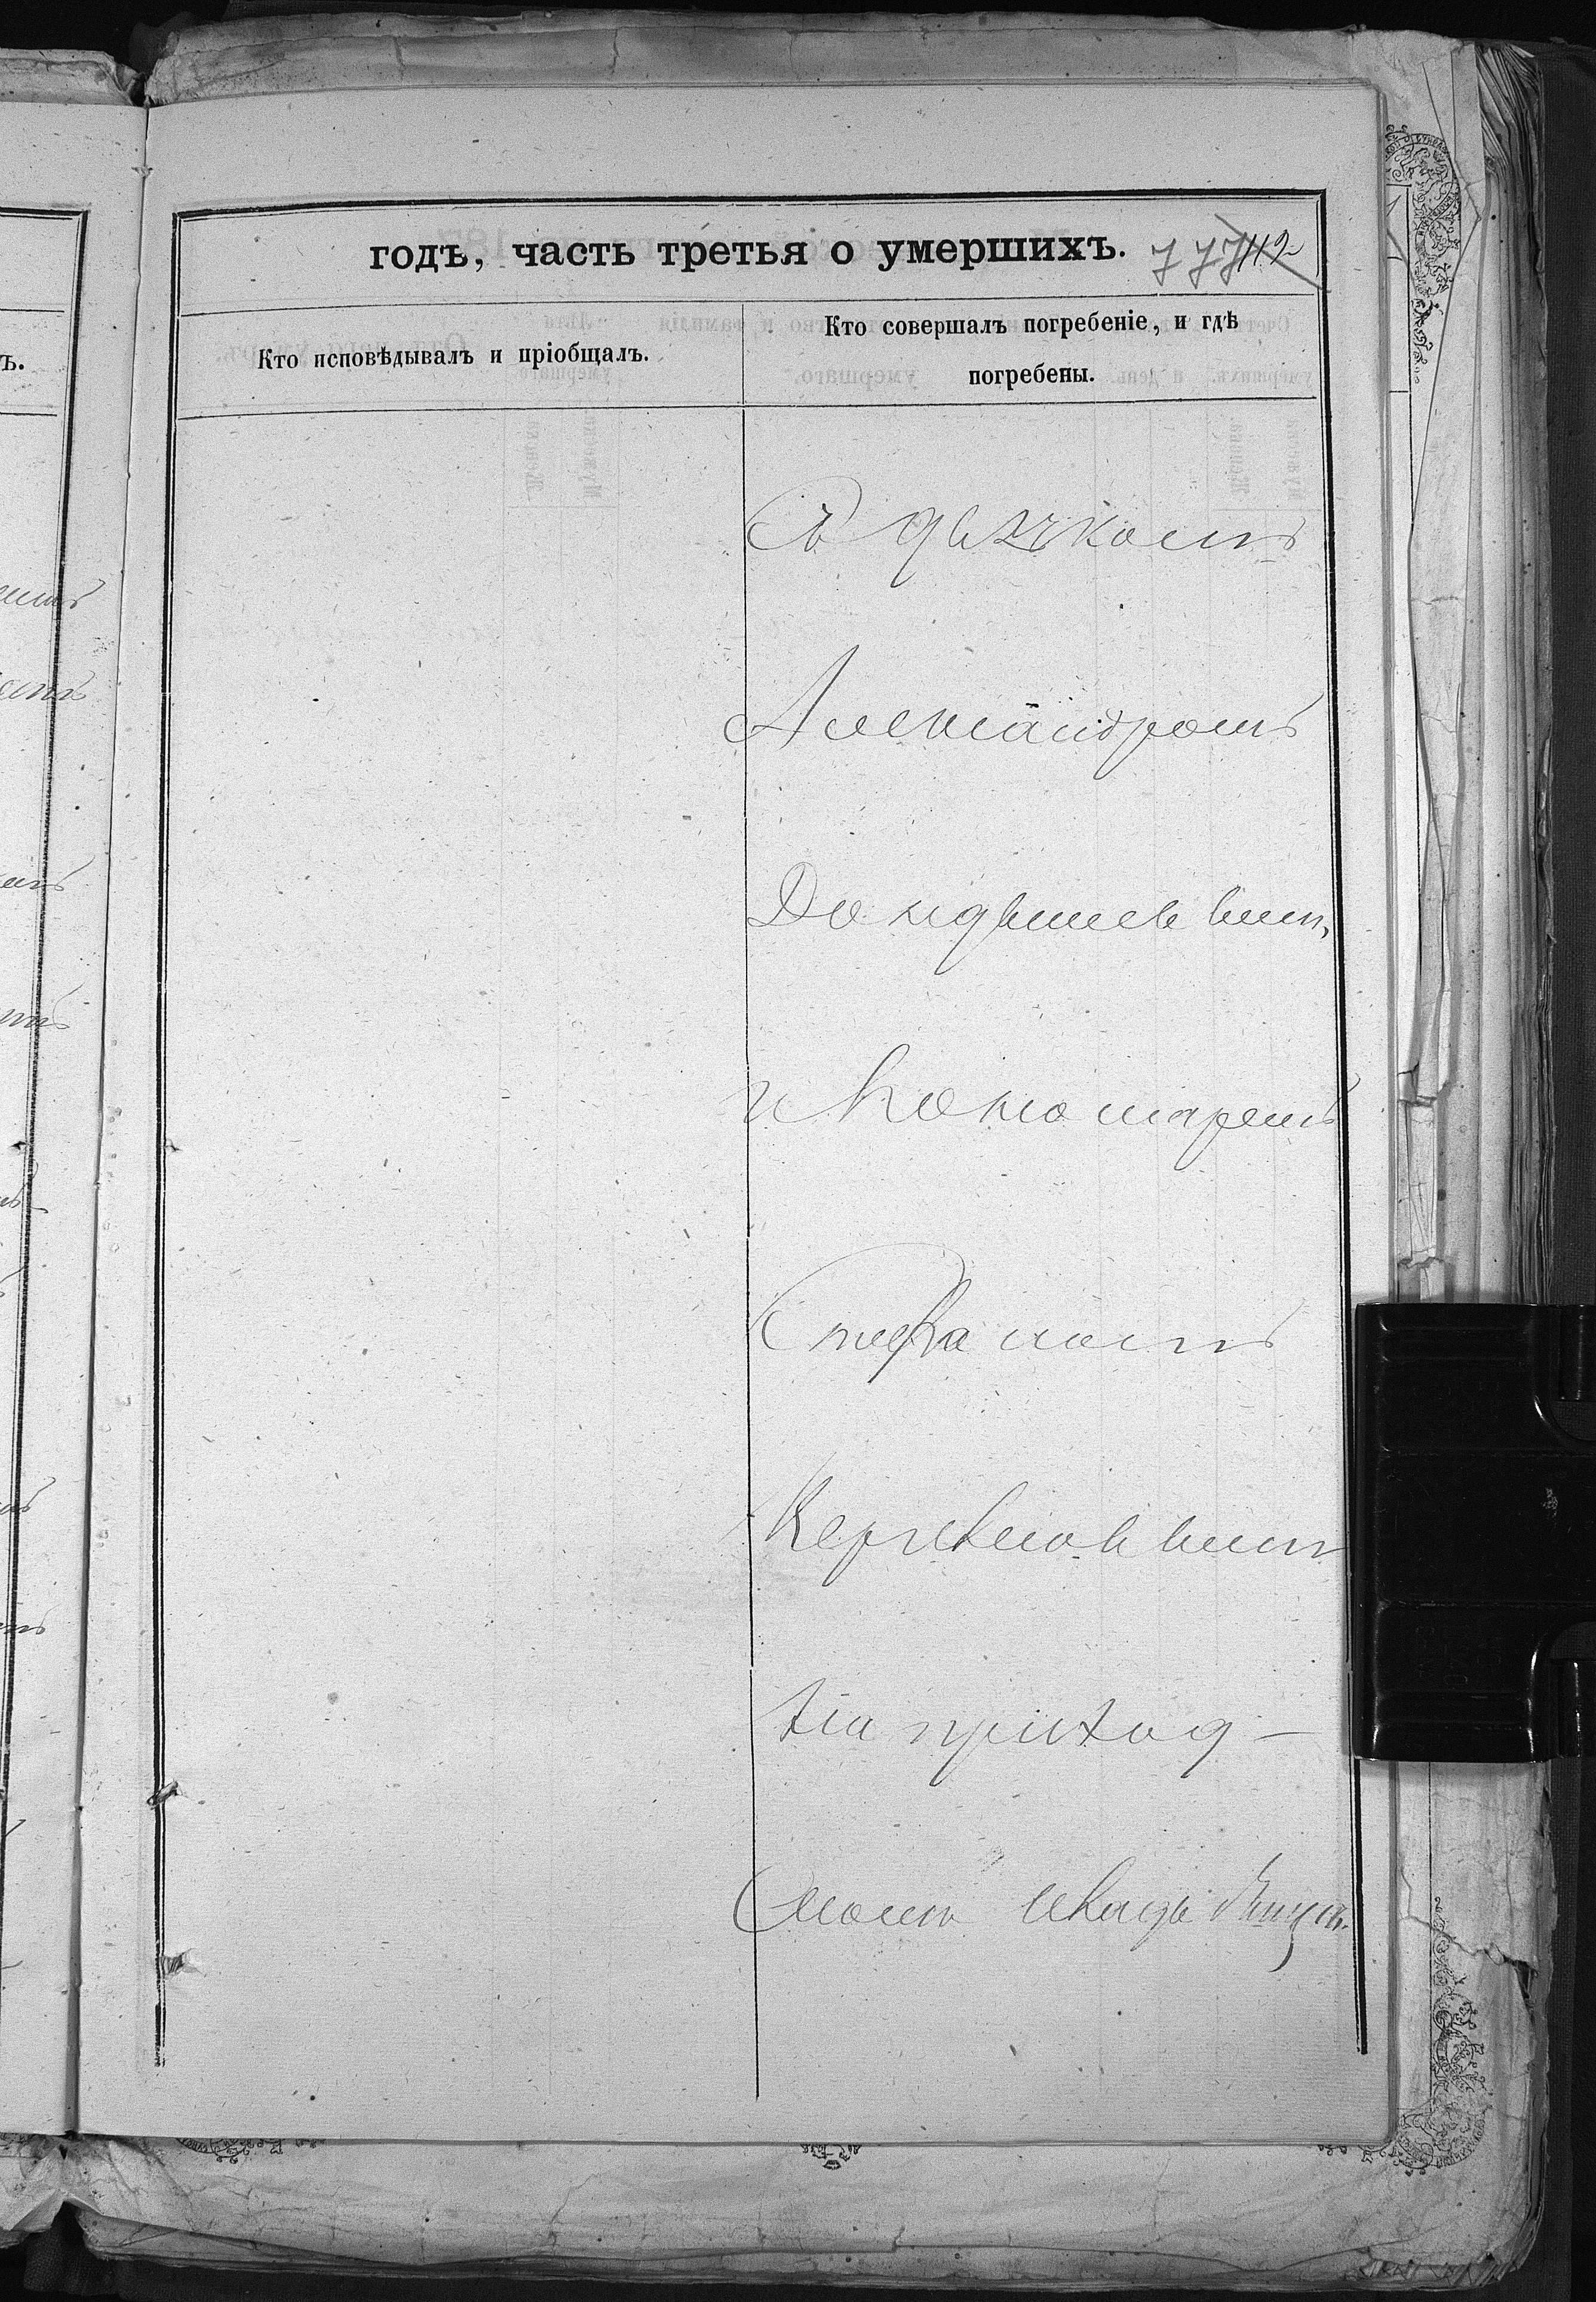 годъ, часть третья о умершихъ. 777 112
Кто исповѣдывалъ и пріобщалъ.
Кто совершалъ погребеніе, и гдѣ
погребены.
ъ.
Съ дьячкомъ
Александромъ
и Пономаремъ
Стефаномъ
На приход-
скомъ кладбищѣ.